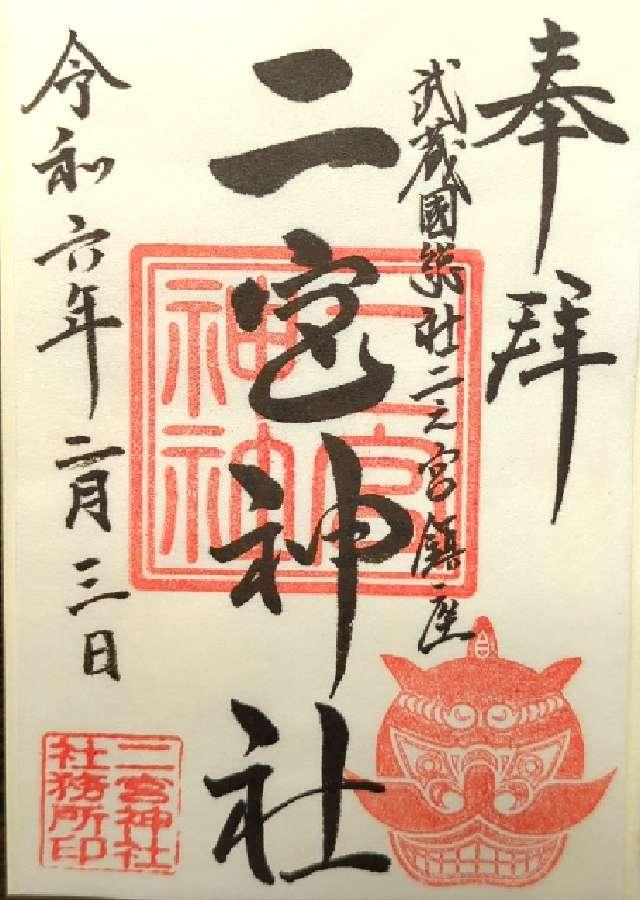 奉拜
武蔵國総社二之宮鎮座
二宮神社
令和六年二月三日
二宮神社
社務所印